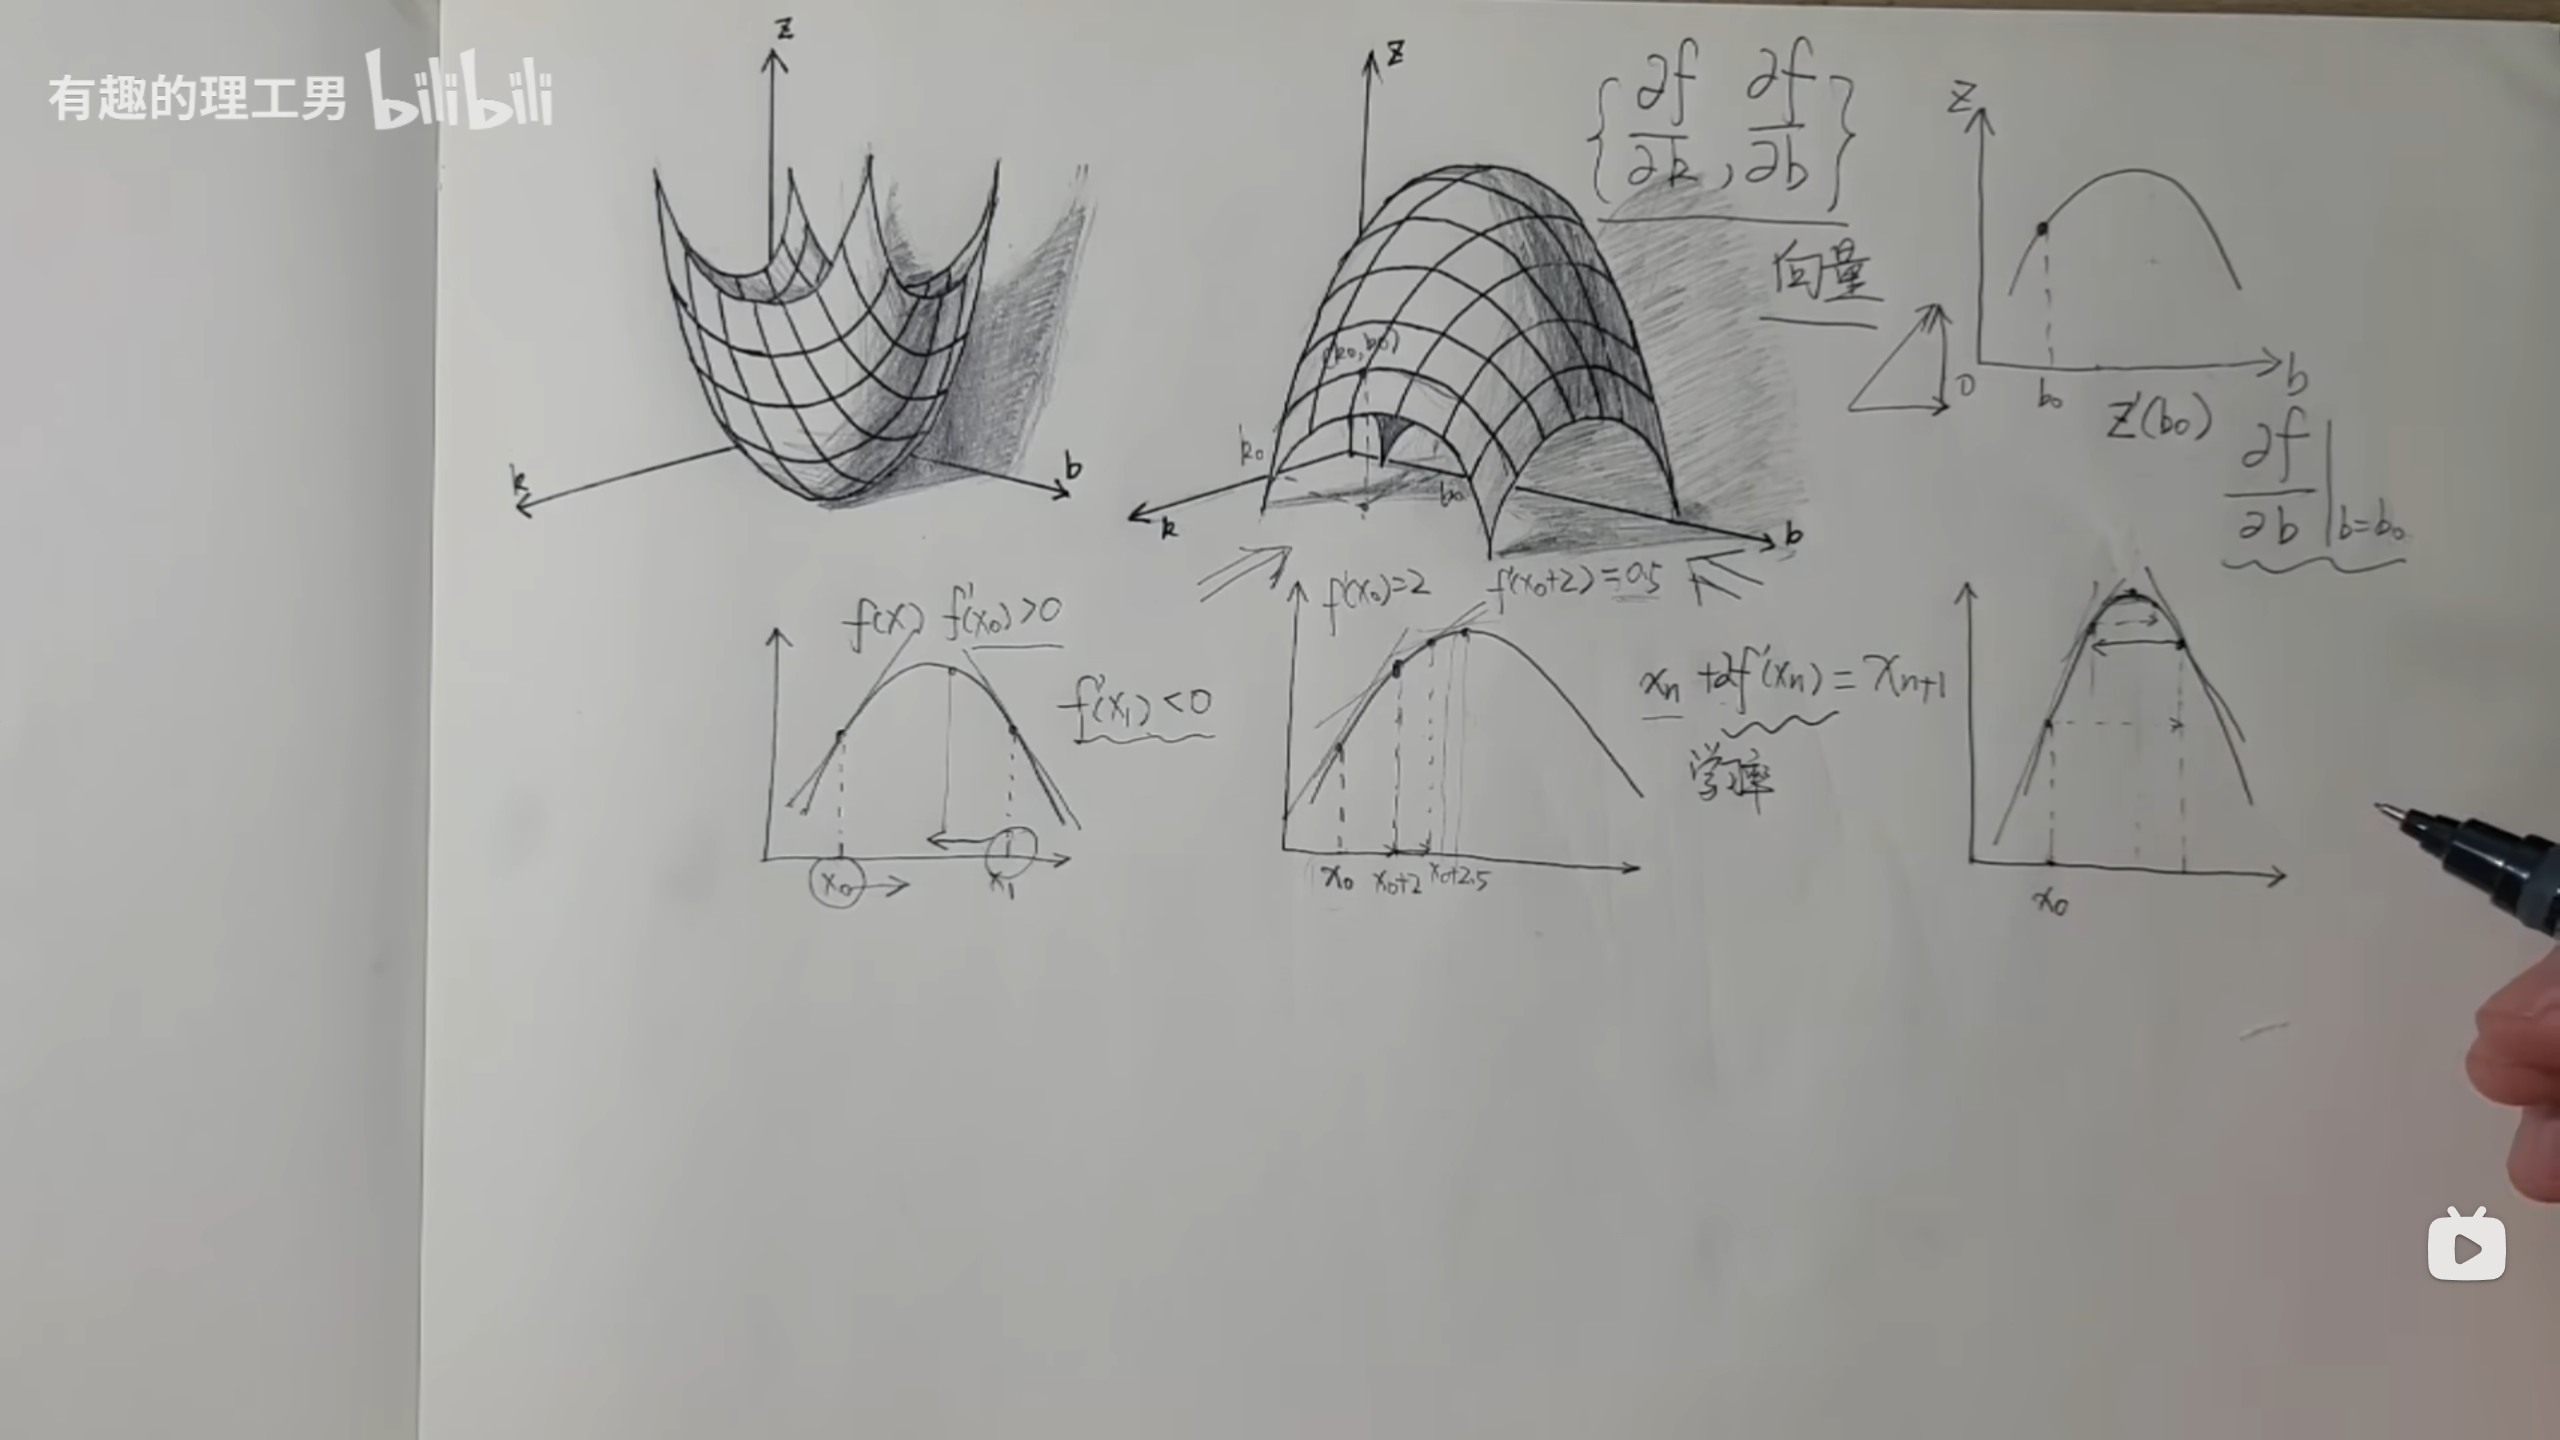 有趣的理工男 bilibili
z
k
b
z
(k₀,b₀)
k₀
b₀
k
b
{∂f/∂k, ∂f/∂b}
向量
Z
0
b₀
b
Z'(b₀)
∂f/∂b|b=b₀
f(x) f'(x₀)>0
f'(x₁)<0
x₀
x₁
f'(x₀)=2 f'(x₀+2)=0.5
x₀ x₀+2 x₀+2.5
xₙ+2f'(xₙ)=xₙ₊₁
学习率
x₀